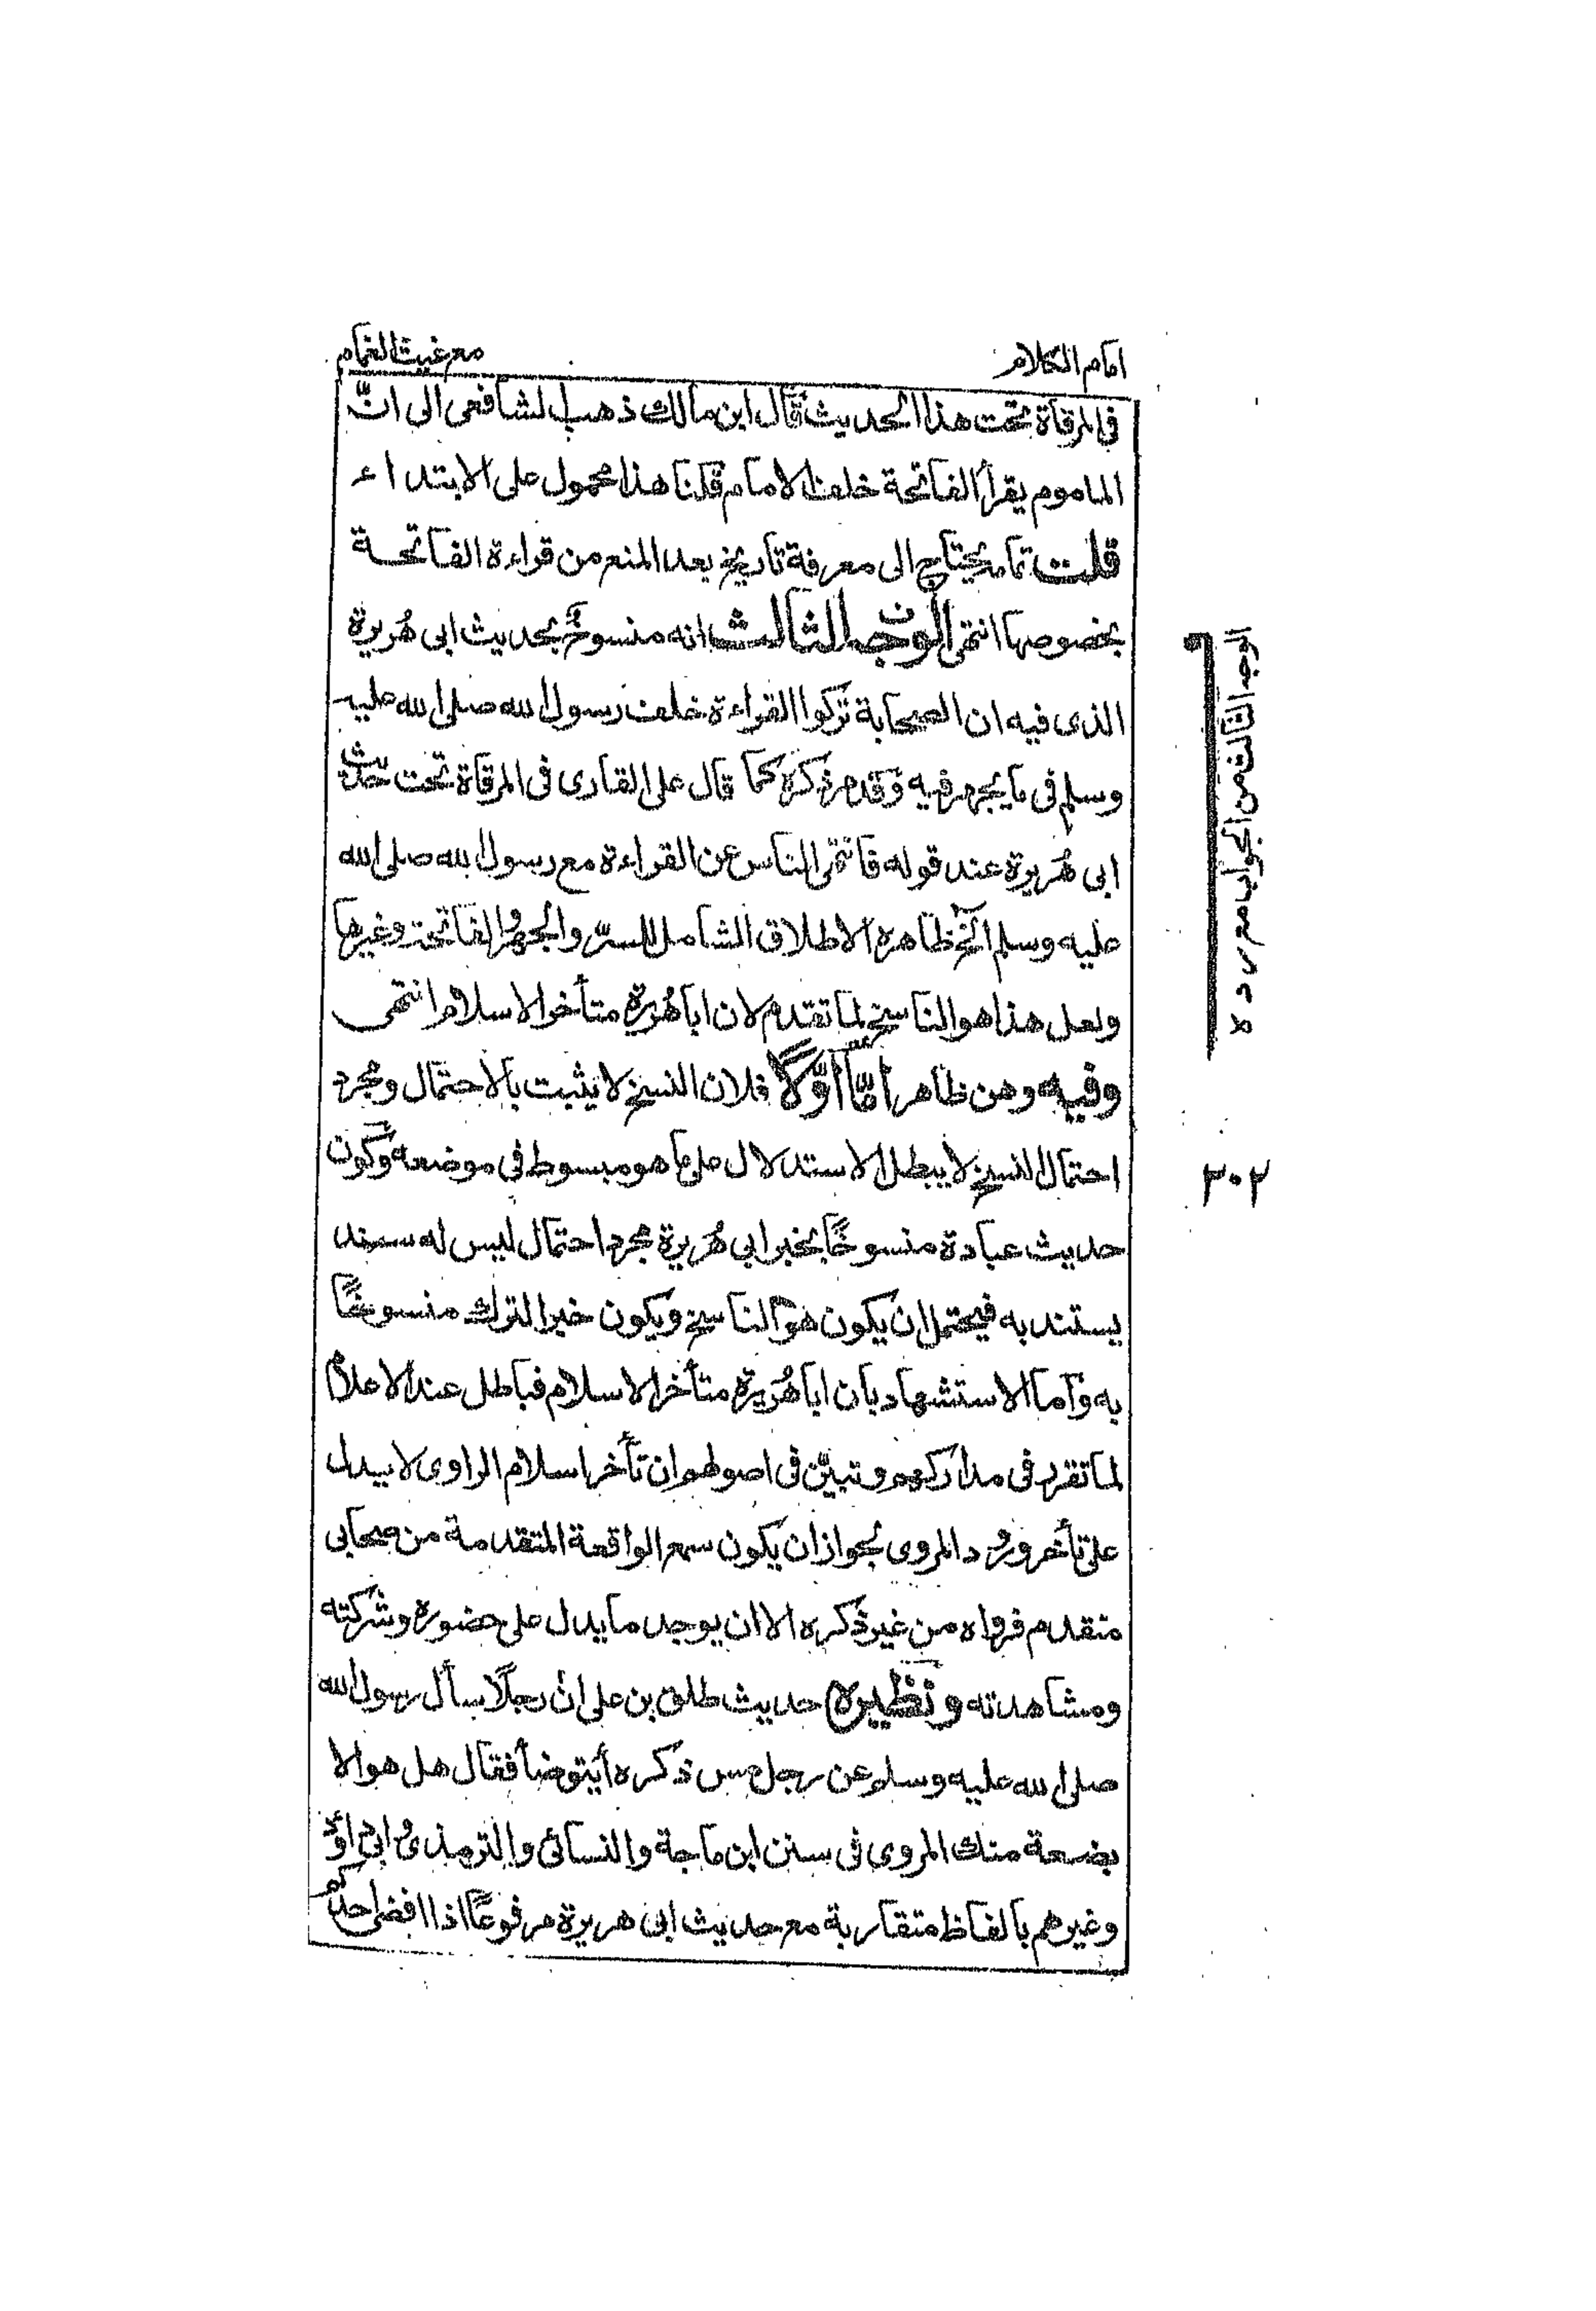 امام الكلام
مع غيث الغمام
فى المرقاة تحت هذا الحديث قال ابن مالك ذهب الشافعى الى انّ
الماموم يقرأ الفاتحة خلف الامام قلنا هذا محمول على الابتداء
قلت تمامه يحتاج الى معرفة تاريخ بعد المنع من قراءة الفاتحة
بخصوصها انتهى الوجه الثالث انه منسوخ بحديث ابى هُريرة
الذى فيه ان الصحابة تركوا القراءة خلف رسول الله صلى الله عليه
وسلم فى ما يجهر فيه وقد مر ذكره كما قال على القارى فى المرقاة تحت حديث
ابى هُريرة عند قوله فانتهى الناس عن القراءة مع رسول الله صلى الله
عليه وسلم الخ ظاهره الاطلاق الشامل للسرّ والجهر والفاتحة وغيرها
ولعل هذا هو الناسخ لما تقدم لان اباهُريرة متأخر الاسلام انتهى
وفيه وهن ظاهر امّا اوّلًا فلان النسخ لا يثبت بالاحتمال ومجرد
احتمال النسخ لا يبطل الاستدلال على ما هو مبسوط فى موضعه وكون
حديث عبادة منسوخًا بخبر ابى هُريرة مجرد احتمال ليس له سند
يستند به فيحتمل ان يكون هو الناسخ ويكون خبر الترك منسوخًا
به وأما الاستشهاد بان اباهُريرة متأخر الاسلام فباطل عند الاعلام
لما تقرر فى مداركهم وتبيّن فى اصولهم ان تأخر اسلام الراوى لا يدل
على تأخر ورود المروى لجواز ان يكون سمع الواقعة المتقدمة من صحابى
متقدم فرواه من غير ذكره الا ان يوجد ما يدل على حضوره وشركته
ومشاهدته ونظيره حديث طلق بن على ان رجلًا سأل رسول الله
صلى الله عليه وسلم عن رجل مس ذكره أيتوضأ فقال هل هو الا
بضعة منك المروى فى سنن ابن ماجة والنسائى والترمذى وابى داؤد
وغيرهم بالفاظ متقاربة مع حديث ابى هريرة مرفوعًا اذا افضى احدكم
الوجه الثالث من الجواب مع رده
٣٠٢